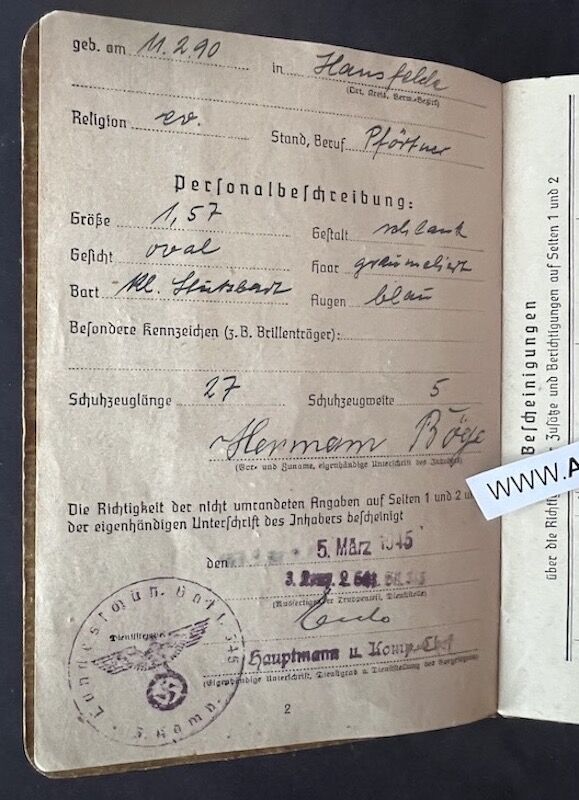 geb. am 11.2.90 in Hansfelde
(Ort, Kreis, Verw.-Bezirk)
Religion ev. Stand, Beruf Pförtner
Personalbeſchreibung:
Größe 1,57 Geſtalt schlank
Geſicht oval Haar graumeliert
Bart kl. Stutzbart Augen blau
Beſondere Kennzeichen (z.B. Brillenträger):
Schuhzeuglänge 27 Schuhzeugweite 5
Hermann Röge
(Vor- und Zuname, eigenhändige Unterſchrift des Inhabers)
Die Richtigkeit der nicht umrandeten Angaben auf Seiten 1 und 2 u
der eigenhändigen Unterſchrift des Inhabers beſcheinigt
den 5. März 1945
3.
(Ausfertigender Truppenteil, Dienſtſtelle)
Hauptmann u. Komp.-Chef
(Eigenhändige Unterſchrift, Dienſtgrad u. Dienſtſtellung des Vorgeſetzten)
Dienſtſiegel
Batl.
Komp.
2
Beſcheinigungen
über die Richtig Zuſätze und Berichtigungen auf Seiten 1 und 2
WWW.A